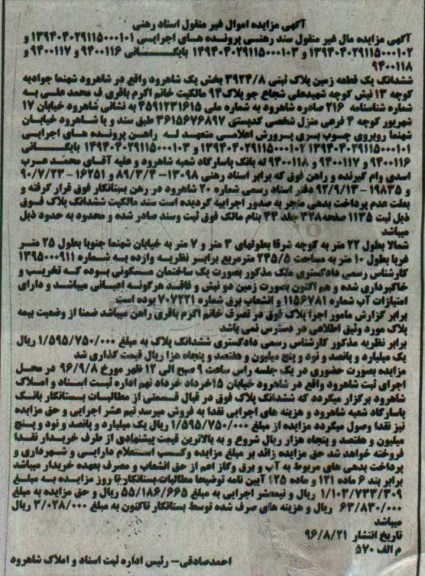 آگهی مزایده اموال غیر منقول اسناد رهنی
آگهی مزایده مال غیر منقول سند رهنی پرونده های اجرایی ۱۳۹۴۰۴۰۲۹۱۱۵۰۰۰۱۰۱ و
۱۳۹۴۰۴۰۲۹۱۱۵۰۰۰۱۰۲ و ۱۳۹۴۰۴۰۲۹۱۱۵۰۰۰۱۰۳ بایگانی ۹۴۰۰۱۱۶ و ۹۴۰۰۱۱۷ و
۹۴۰۰۱۱۸
ششدانگ یک قطعه زمین پلاک ثبتی ۳۹۲۴/۸ بخش یک شاهرود واقع در شاهرود شهنما جوادیه
کوچه ۱۳ نبش کوچه شهیدعلی شجاع جو پلاک ۹۴ مالکیت خانم اکرم باقری ف محمد علی به
شماره شناسنامه ۲۱۶ صادره شاهرود به شماره ملی ۴۵۹۱۲۳۱۶۱۵ به نشانی شاهرود خیابان ۱۷
شهریور کوچه ۴ فرعی منزل شخصی کدپستی ۳۶۱۵۶۷۶۸۹۷ طبق سند و یا شاهرود خیابان
شهنما روبروی چوب بری پرورش اعلامی متعهد له راهن پرونده های اجرایی
۹۴۰۰۱۱۶ و ۹۴۰۰۱۱۷ و ۹۴۰۰۱۱۸ له بانک پاسارگاد شعبه شاهرود و علیه آقای محمد عرب
اسدی وام گیرنده و راهن فوق که برابر اسناد رهنی ۱۳۰۹۸-۸۹/۳/۴ و ۱۶۲۵۱-۹۰/۷/۲۳
و ۱۹۸۳۵-۹۲/۹/۱۳ دفتر اسناد رسمی شماره ۲۰ شاهرود در رهن بستانکار فوق قرار گرفته و
بعلت عدم پرداخت بدهی منجر به صدور اجراییه گردیده است سند مالکیت ششدانگ پلاک فوق
ذیل ثبت ۱۱۳۵ صفحه ۳۲۸ جلد ۴۴ بنام مالک فوق ثبت وسند صادر شده و محدود به حدود ذیل
میباشد
شمالا بطول ۲۲ متر به کوچه شرقا بطولهای ۳ متر و ۷ متر به خیابان شهنما جنوبا بطول ۲۵ متر
غربا بطول ۱۰ متر به مساحت ۲۴۵/۵ مترمربع برابر نظریه وارده به شماره ۱۳۹۵۰۰۰۹۱۱
کارشناس رسمی دادگستری ملک مذکور بصورت یک ساختمان مسکونی بوده که تخریب و
خاکبرداری شده و هم اکنون بصورت زمین دو نبش و فاقد هرگونه اعیانی میباشد و دارای
امتیازات آب شماره ۱۱۵۶۷۸۱ و انشعاب برق شماره ۷۰۷۲۲۱ بوده است
برابر گزارش مامور اجرا پلاک فوق در تصرف خانم اکرم باقری راهن میباشد ضمنا از وضعیت بیمه
پلاک مورد وثیق اطلاعی در دسترس نمی باشد
برابر نظریه مذکور کارشناس رسمی دادگستری ششدانگ پلاک به مبلغ ۱/۵۹۵/۷۵۰/۰۰۰ ریال
یک میلیارد و پانصد و نود و پنج میلیون و هفتصد و پنجاه هزار ریال قیمت گذاری شد
مزایده بصورت حضوری در یک جلسه راس ساعت ۹ صبح الی ۱۲ ظهر مورخ ۹۶/۹/۸ در محل
اجرای ثبت شاهرود واقع در شاهرود خیابان ۱۵ خرداد خرداد نهم اداره ثبت اسناد و املاک
شاهرود برگزار میگردد که ششدانگ پلاک فوق در قبال قسمتی از مطالبات بستانکار بانک
پاسارگاد شعبه شاهرود و هزینه های اجرایی نقدا به فروش میرسد نیم عشر اجرایی و حق مزایده
نیز نقدا وصول میگردد مزایده از مبلغ ۱/۵۹۵/۷۵۰/۰۰۰ ریال یک میلیارد و پانصد و نود و پنج
میلیون و هفتصد و پنجاه هزار ریال شروع و به بالاترین قیمت پیشنهادی از طرف خریدار نقدا
فروخته خواهد شد حق مزایده زائد بر مبلغ مزایده وکسب استعلام دارایی و شهرداری و
پرداخت بدهی های مربوط به آب و برق وگاز اعم از حق انشعاب و مصرف بعهده خریدار میباشد
برابر بند ۶ ماده ۱۲۱ و ماده ۱۲۵ آیین نامه توضیحا مطالبات بستانکار تا روز مزایده به مبلغ
۱/۱۰۳/۷۳۳/۳۰۹ ریال و نیمعشر اجرایی به مبلغ ۵۵/۱۸۶/۶۶۵ ریال و حق مزایده به مبلغ
۶۳/۸۳۰/۰۰۰ ریال و هزینه های صرف شده توسط بستانکار تاکنون به مبلغ ۳/۰۲۸/۰۰۰ ریال
میباشد
تاریخ انتشار ۹۶/۸/۲۱
م الف ۵۷۰
احمدصادقی- رئیس اداره ثبت اسناد و املاک شاهرود